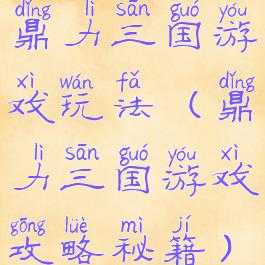 dǐng lì sān guó yóu
鼎力三国游
xì wán fǎ dǐng
戏玩法（鼎
lì sān guó yóu xì
力三国游戏
gōng lüè mì jí
攻略秘籍）